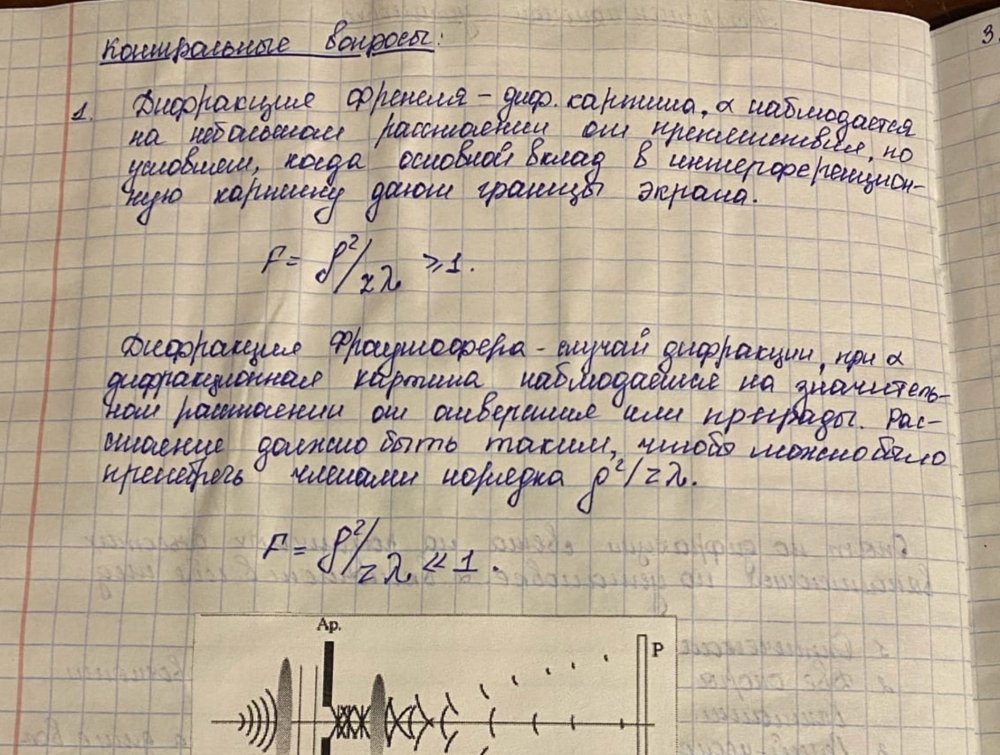 Контрольные вопросы:
3.
1. Дифракция Френеля - диф. картина, α наблюдается
на небольшом расстоянии от препятствия, по
условием, когда основной вклад в интерференцион-
ную картину дают границы экрана.
F = ρ²/zλ ⩾ 1.
Дифракция Фраунгофера - случай дифракции, при α
дифракционная картина наблюдается на значитель-
ном расстоянии от отверстия или преграды. Рас-
стояние должно быть таким, чтобы можно было
пренебречь членами порядка ρ²/zλ.
F = ρ²/zλ ≪ 1.
Ар.
P